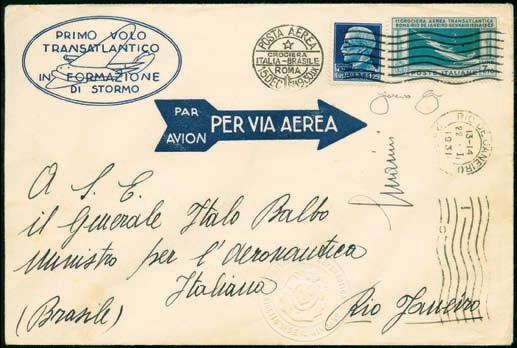 PRIMO VOLO
TRANSATLANTICO
IN FORMAZIONE
DI STORMO
POSTA AEREA
CROCIERA
ITALIA-BRASILE
ROMA
CROCIERA AEREA TRANSATLANTICA
POSTE ITALIANE
PAR
AVION
PER VIA AEREA
RIO DE JANEIRO
13-14
22.I.
1931
A S. E.
il Generale Italo Balbo
Ministro per l'Aeronautica
Italiana
(Brasile)
Rio Janeiro